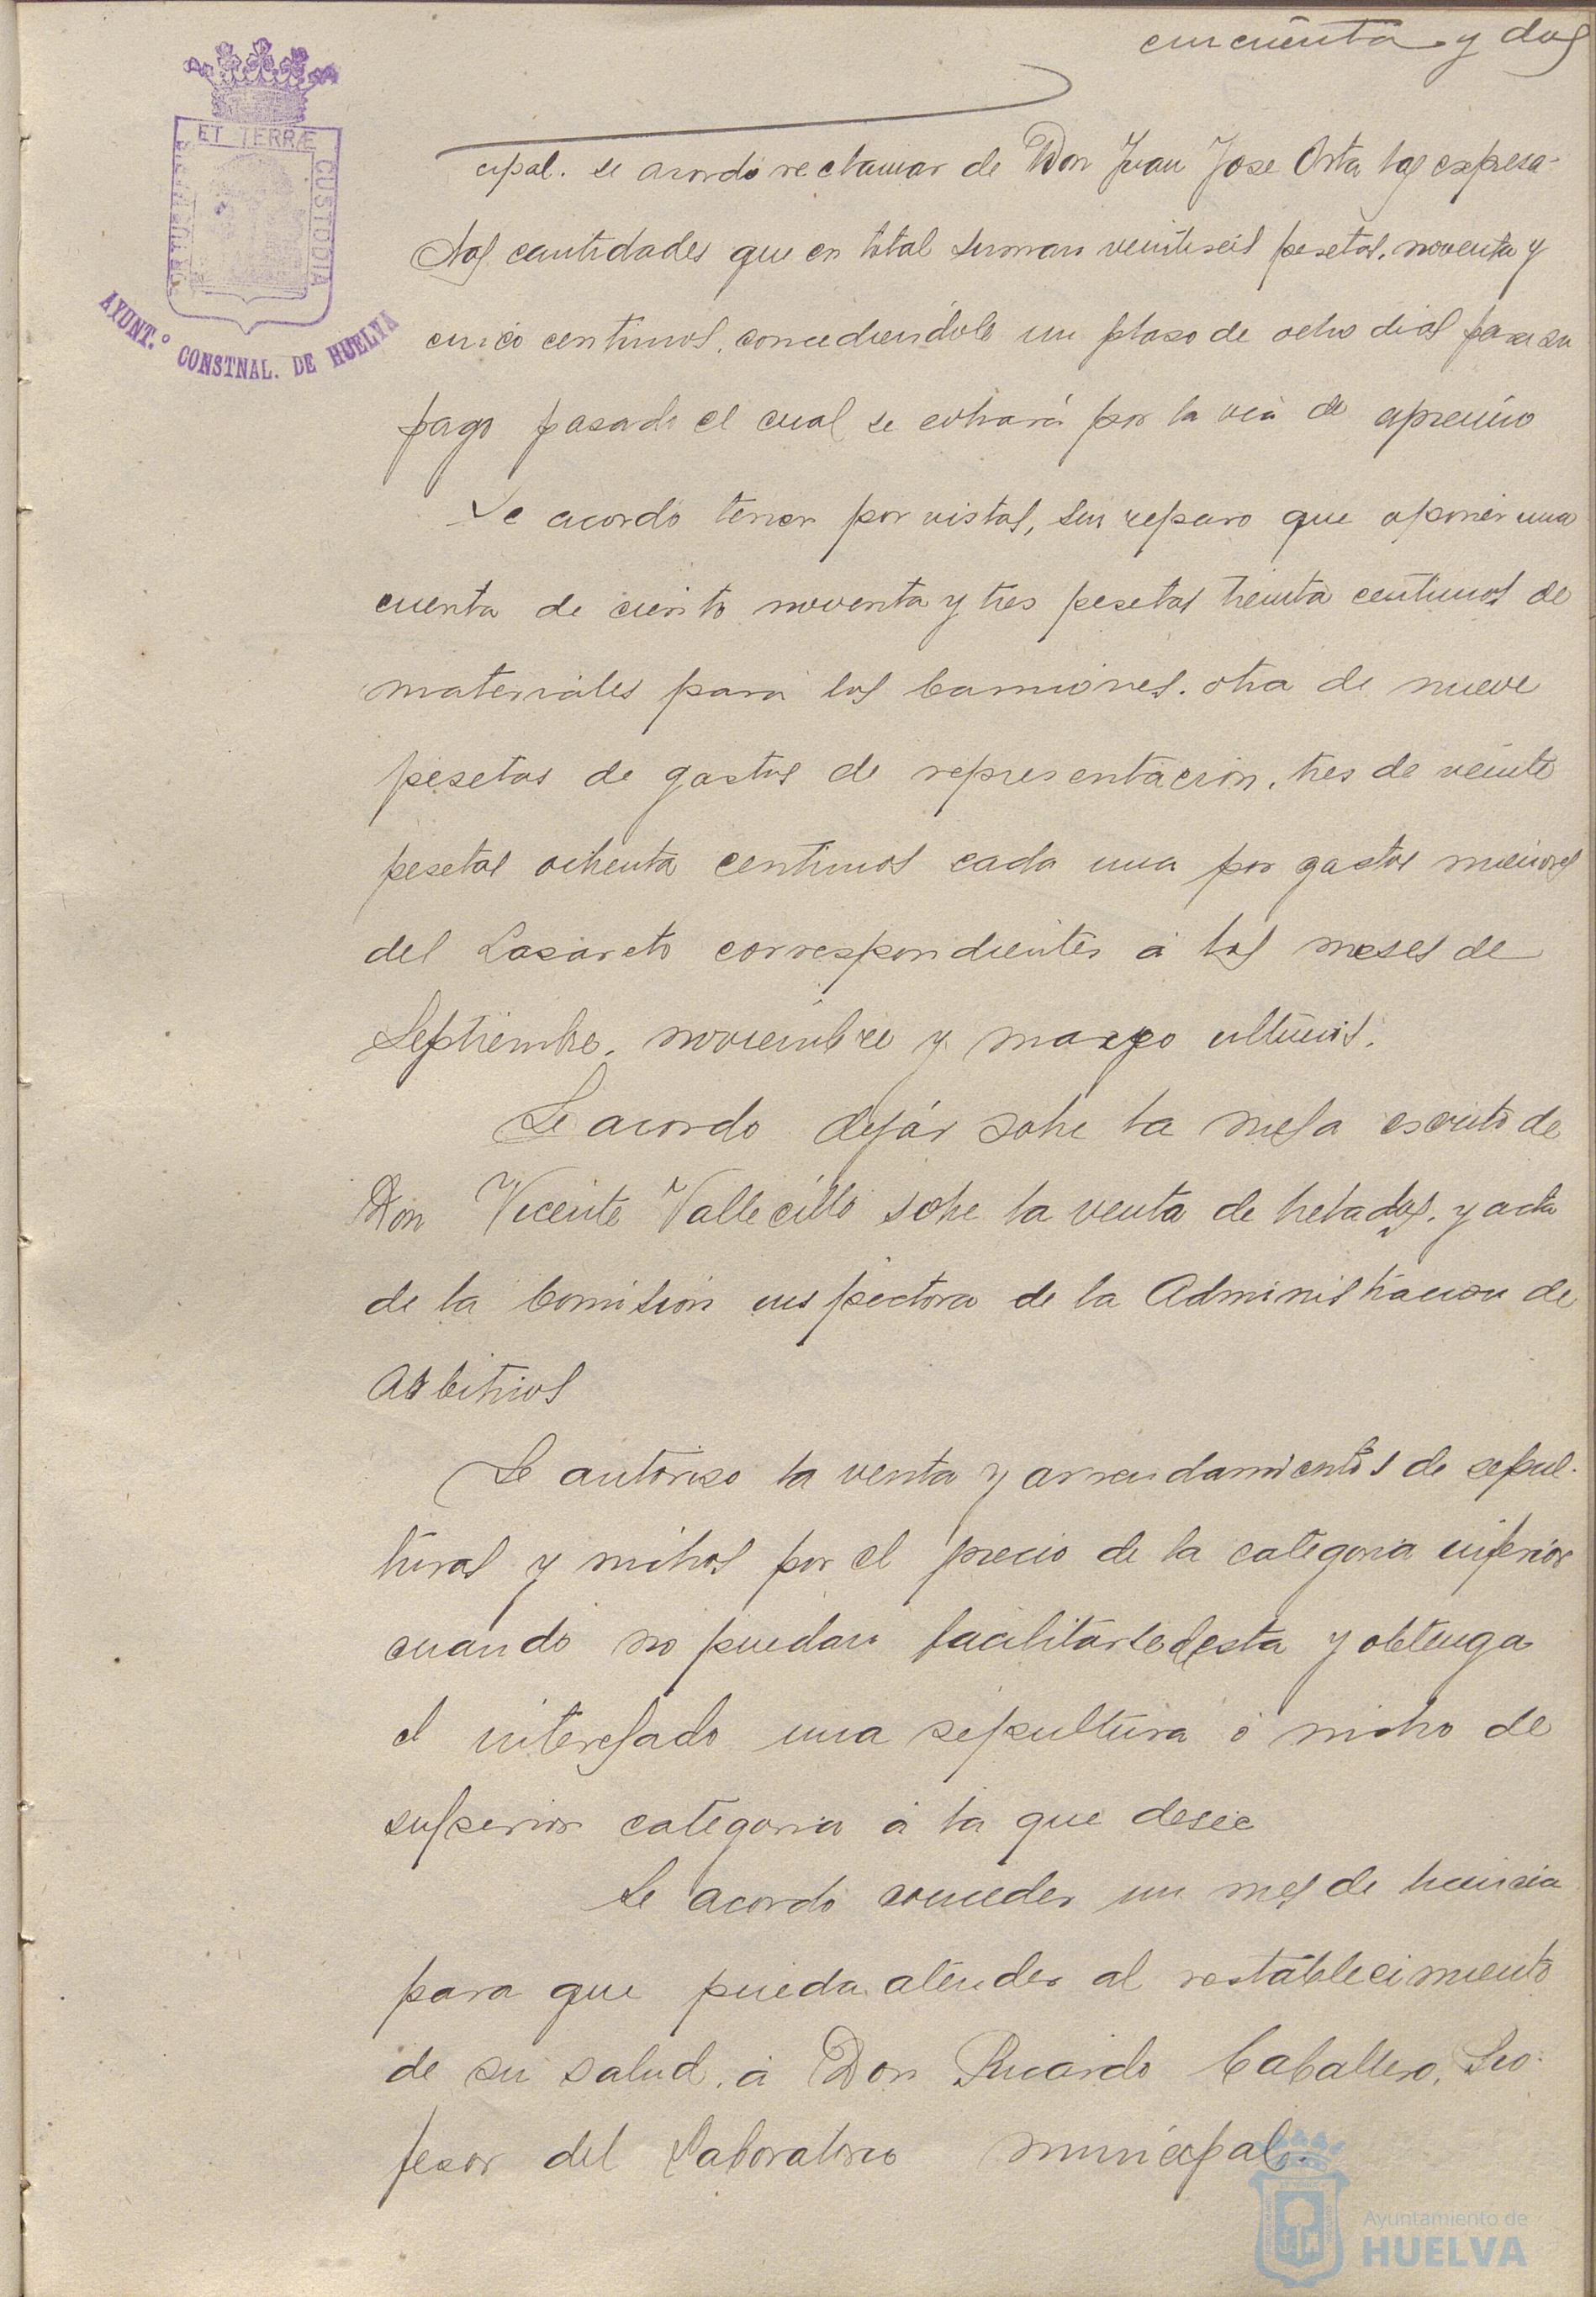 cincuenta y dos
ET TERRÆ
CUSTODIA
AYUNT.º CONSTNAL. DE HUELVA
cipal. se acordó reclamar de Don Juan Jose Orta las expresa-
das cantidades que en total suman veintiseis pesetas, noventa y
cinco centimos, concediendole un plaso de ocho dias para su
pago pasado el cual se cobrará por la via de apremio
Se acordó tener por vistas, sin reparo que oponer una
cuenta de ciento noventa y tres pesetas treinta centimos de
materiales para los camiones. otra de nueve
pesetas de gastos de representacion, tres de veinte
pesetas ochenta centimos cada una por gastos menores
del Lasareto correspondientes á los meses de
Septiembre, noviembre y marzo ultimos.
Se acordo dejár sobre la mesa escrito de
Don Vicente Vallecillo sobre la venta de helados, y acta
de la Comision inspectora de la Administracion de
Arbitrios
Se autoriso la venta y arrendamientos de sepul-
turas y nichos por el precio de la categoria inferior
cuando no puedan facilitarse de esta y obtenga
el interesado una sepultura ó nicho de
superior categoria á la que desee
Se acordó conceder un mes de licencia
para que pueda atender al restablecimiento
de su salud, á Don Ricardo Caballero, Pro-
fesor del Laboratorio municipal.
Ayuntamiento de
HUELVA